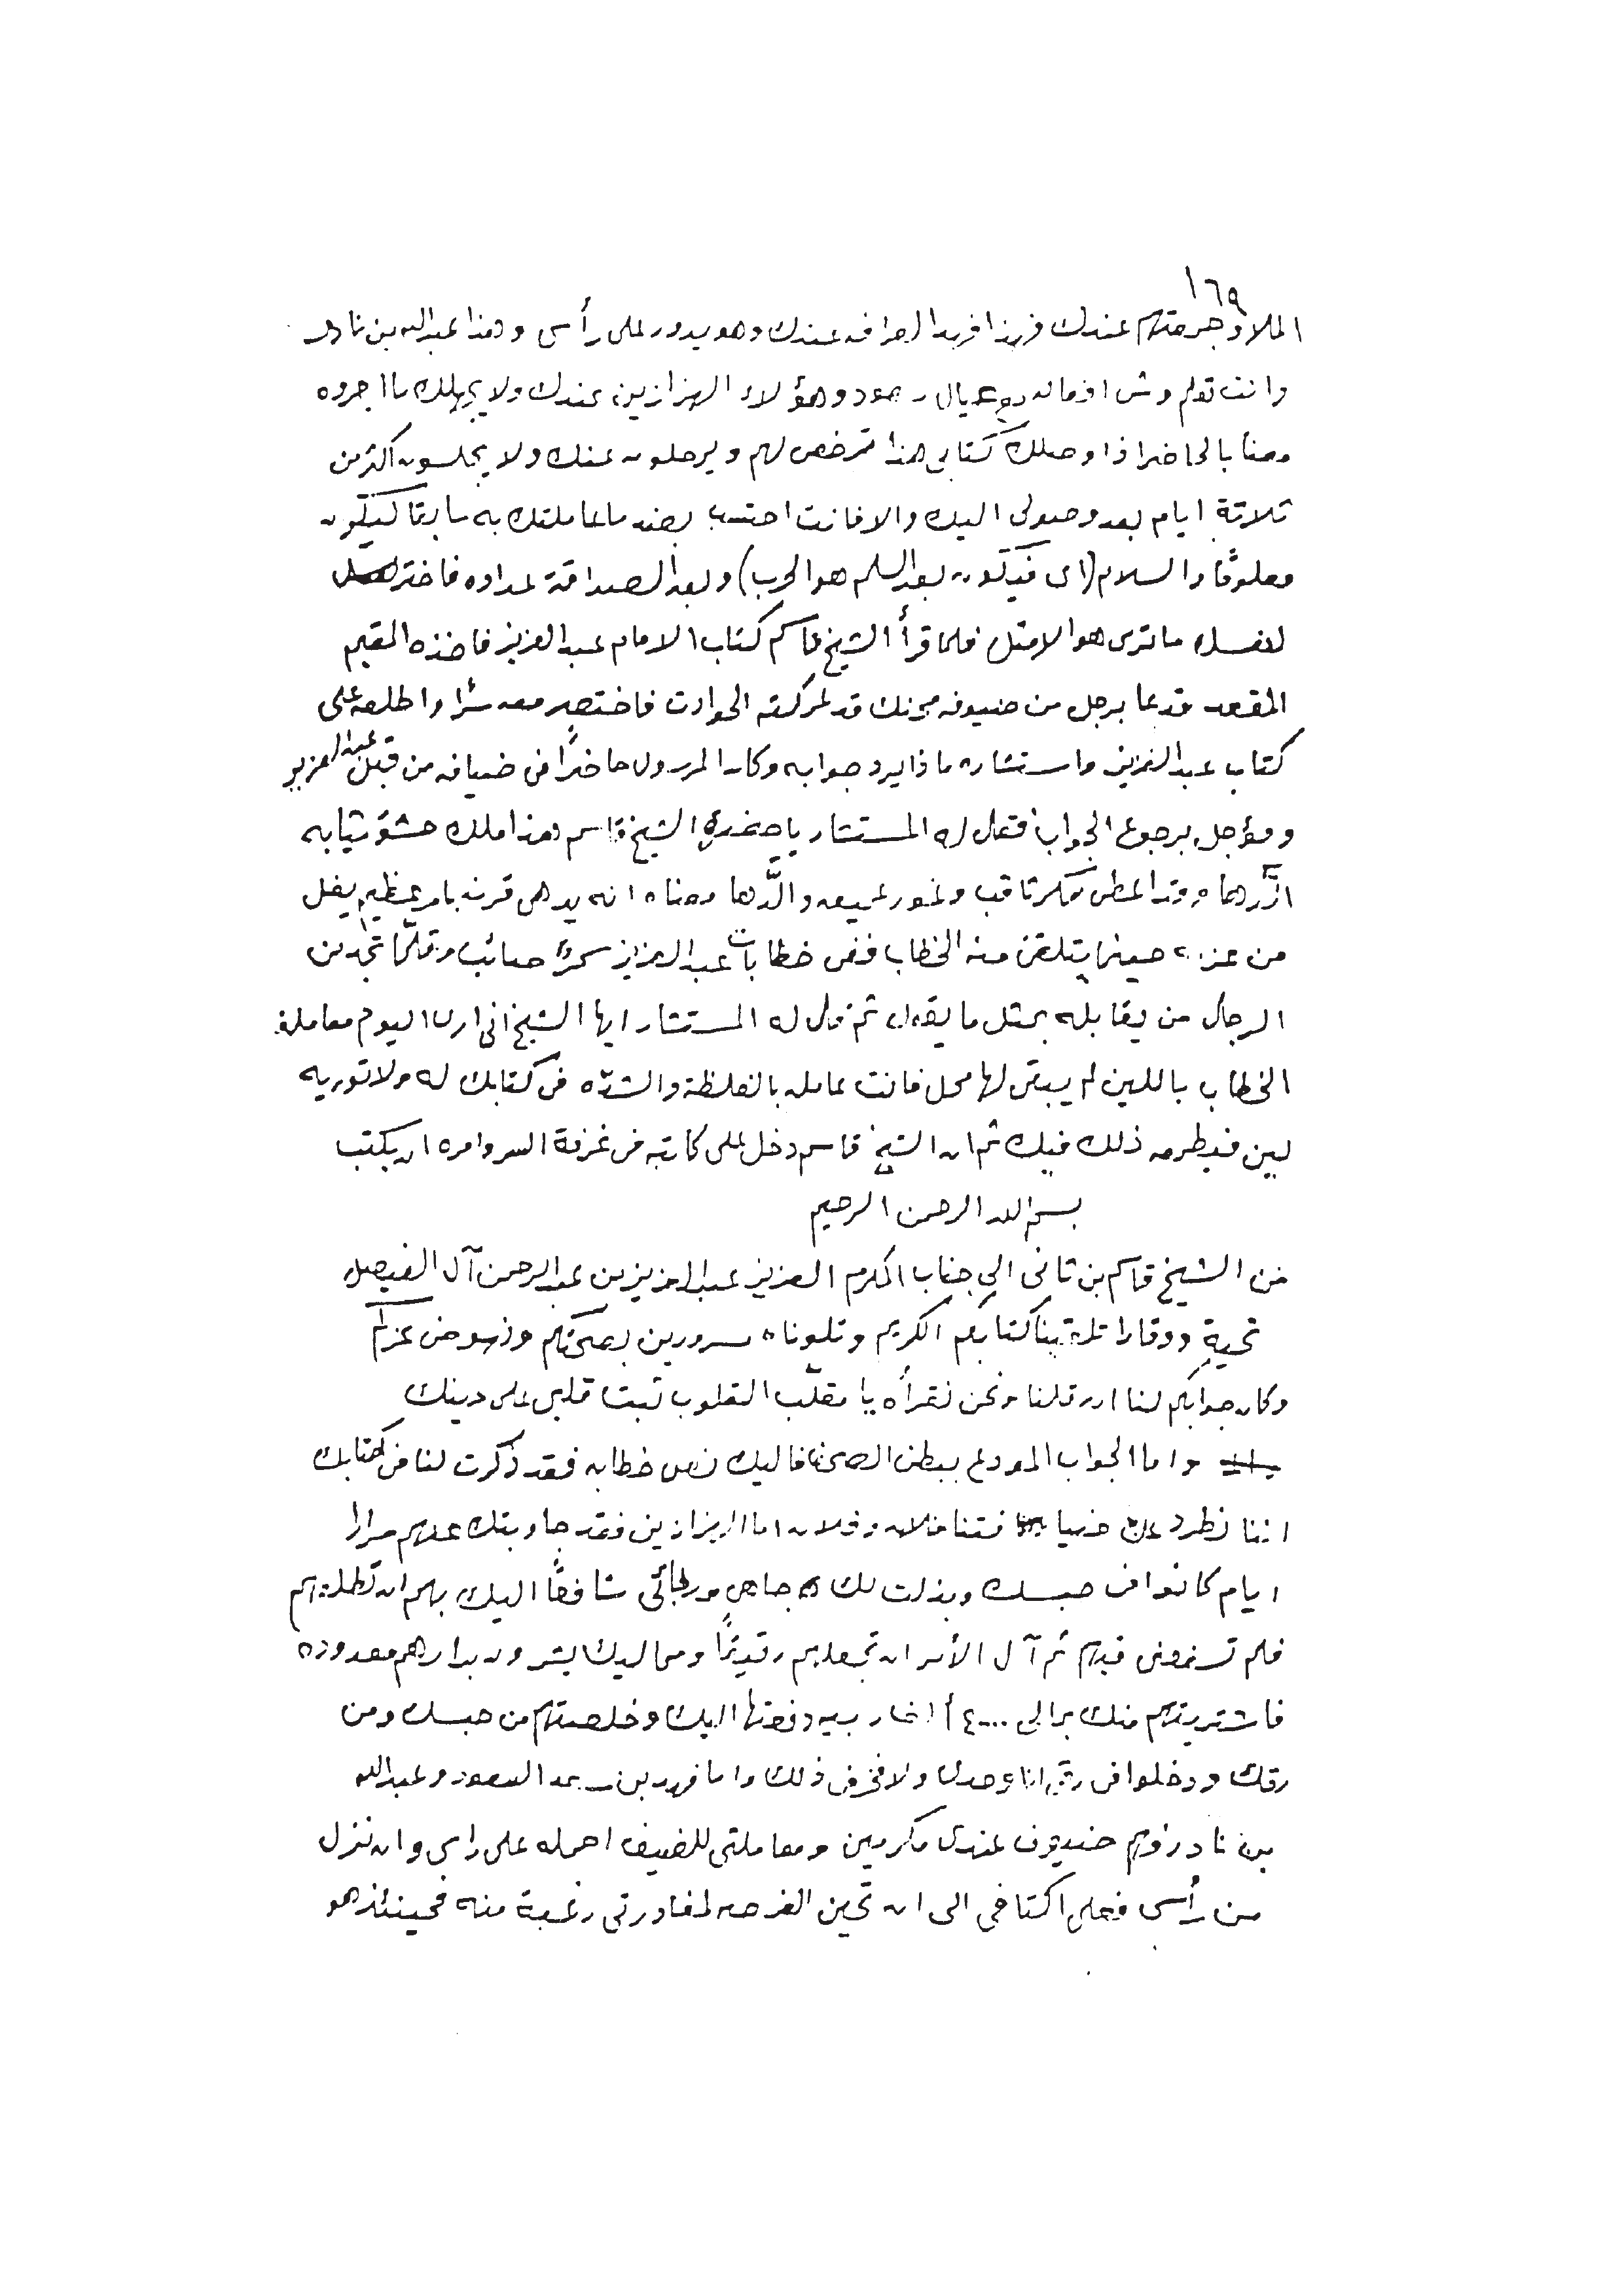 ١٦٩
الملا وجمعتهم عندك فهذا فهد العرافه عندك وهو يدور على رأسي وهذا عبدالله بن نادر
وانت تعلم وش افعاله عيال سعود وهؤلاء الهزازين عندك ولا يجهلك ما اجروه
معنا بالحاضر اذا وصلك كتابي هذا ترخص لهم ويرحلون عنك ولا يجلسون اكثر من
ثلاثة ايام بعد وصولي اليك والا فانت احتسب بضد ما عاملتك به سابقا ليكون
معلومًا والسلام (اى فيكون بعد السلم هو الحرب) وبعد الصداقة عداوه فاختر
لنفسك ما ترى هو الامثل فلما قرأ الشيخ قاسم كتاب الامام عبدالعزيز فاخذه المقيم
المقعد فدعا برجل من ضيوفه محنك قد عركته الحوادث فاختصر معه سرًا واطلعه على
كتاب عبدالعزيز واستشاره ماذا يرد جوابه وكان المرسول حاضرًا فى ضيافه من قبل عبدالعزيز
ومؤجل برجوع الجواب فقال له المستشار يا حضرة الشيخ قاسم هذا ملك حشو ثيابه
الدها وقد اعطى فكر ثاقب وغور عميق والدَّها معناه انه يدهى قرنه بامر عظيم يفل
من عزمه حينما يتلقى منه الخطاب ففى خطابات عبدالعزيز سحرٌ صائب وقلّما تجد من
الرجال من يقابله بمثل ما يقول ثم قال له المستشار ايها الشيخ انى ارى اليوم معاملة
الخطاب باللين لم يبقى لها محل فانت عامله بالغلظة والشدّه فى كتابك له ولا توريه
لين فيطرمه ذلك فيك ثم ان الشيخ قاسم دخل على كاتبه فى غرفة السر وامره ان يكتب
بسم الله الرحمن الرحيم
من الشيخ قاسم بن ثانى الى جناب المكرم العزيز عبدالعزيز بن عبدالرحمن آل الفيصل
تحيةٍ ووقارا تلقينا كتابكم الكريم وتلوناه مسرورين بصحتكم ونهوض عزائم
وكان جوابكم لنا ان قلنا ونحن نقرأه يا مقلّب القلوب ثبت قلبى على دينك
واما الجواب المودع ببطن الصحيفا فاليك نص خطابه فقد ذكرت لنا فى كتابك
اننا نطرد عن ضيافتنا فلان وفلان اما الهزازين فقد جاوبتك عنهم مرارا
ايام كانوا فى حبسك وبذلت لك جاهى ورجائى شافعًا اليك بهم ان تطلقهم
فلم تسمعنى فيهم ثم آل الأمر ان تجعلهم رقيقًا ومماليك يشرون بدارهم معدوده
فاشتريتهم منك بمالى ٤٠٠٠٠ دفعتها اليك وخلصتهم من حبسك ومن
رقك ودخلوا فى رقى انا وحدى ولا فخر فى ذلك واما فهد بن سعد السعود وعبدالله
بن نادر فهم ضيوف عندى مكرمين ومعاملتى للضيف احمله على راسى وان نزل
من رأسى فعلى اكتافى الى ان تحين الفرصه لمغادرتى رغبة منه فحينئذ هو